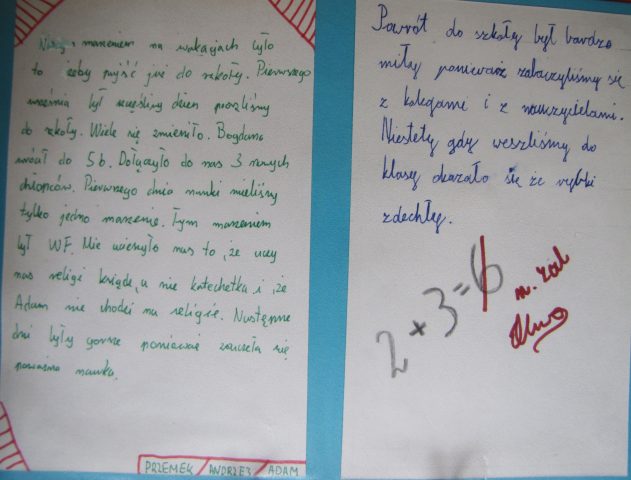 Naszym marzeniem na wakacjach było
to żeby pujść już do szkoły. Pierwszego
września był szczęśliwy dzien poszliśmy
do szkoły. Wiele się zmieniło. Bogdana
wrócił do 5b. Dołączyło do nas 3 nowych
chłopców. Pierwszego dnia nauki mieliśmy
tylko jedno marzenie. Tym marzeniem
był WF. Nie ucieszyło nas to, że uczy
nas religi ksiądz, a nie katechetka i, że
Adam nie chodzi na religię. Następne
dni były gorsze ponieważ zaczeła się
poważna nauka.
PRZEMEK / ANDRZEJ / ADAM
Powrót do szkoły był bardzo
miły ponieważ zobaczyliśmy się
z kolegami i z nauczycielami.
Niestety gdy weszliśmy do
klasy okazało się że rybki
zdechły.
2 + 3 = 6